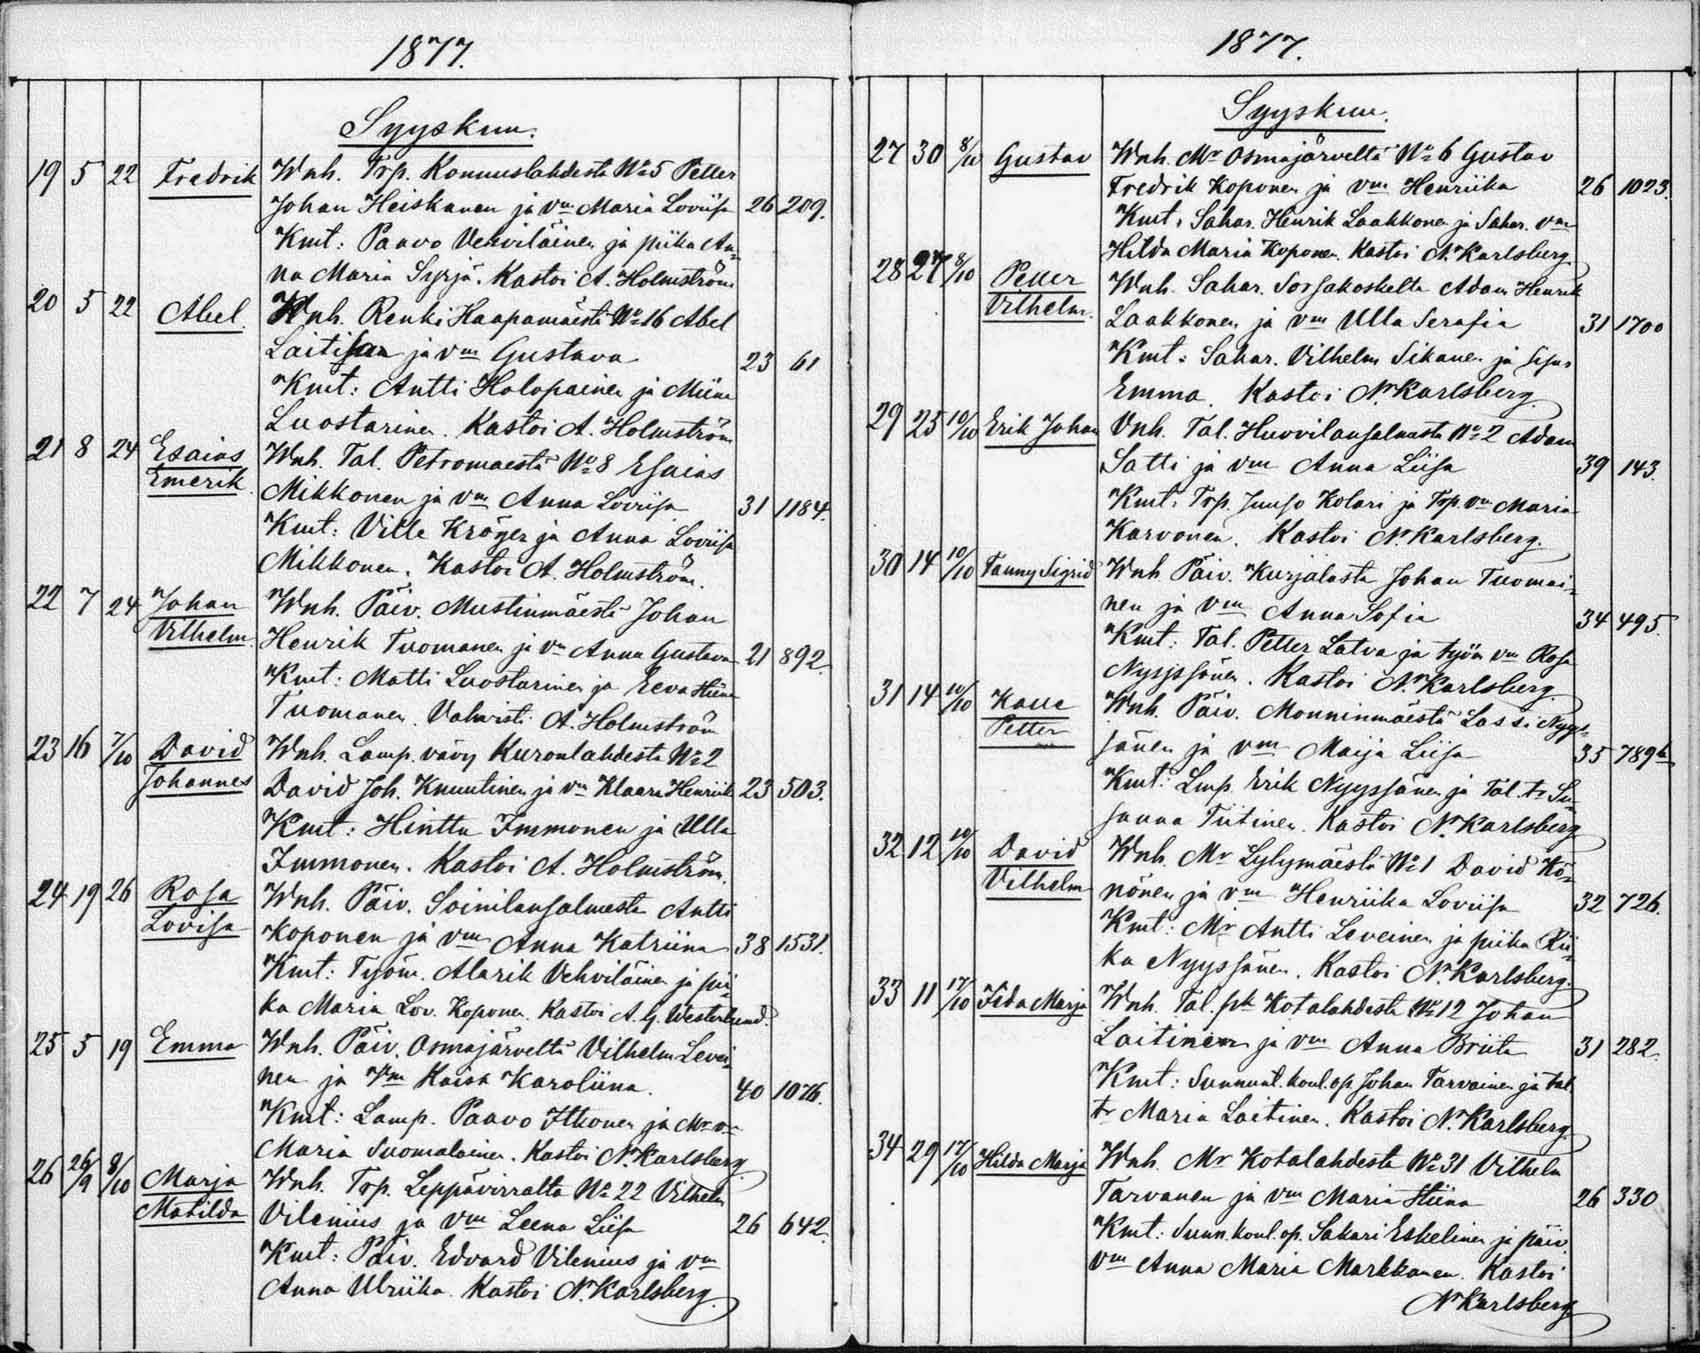 1877.
Syyskuu.
19 5 22 Fredrik Wnh. Trp. Konnuslahdesta No 5 Petter
Johan Heiskanen ja vm Maria Loviisa 26 209.
Kmt: Paavo Vehviläinen ja piika An-
na Maria Syrjä. Kastoi A. Holmström
20 5 22 Abel Wnh. Renki Haapamäestä No 16 Abel
Laitinen ja vm Gustava 23 61
Kmt: Antti Holopainen ja Miina
Luostarinen. Kastoi A. Holmström
21 8 24 Esaias Wnh. Tal. Petromaestä No 8 Esaias
Emerik Mikkonen ja vm Anna Loviisa 31 1184.
Kmt: Ville Kröger ja Anna Loviisa
Mikkonen. Kastoi A. Holmström.
22 7 24 Johan Wnh. Päiv. Mustinmäestä Johan
Vilhelm Henrik Tuomanen ja vm Anna Gustava 21 892.
Kmt: Matti Luostarinen ja Eeva Stiina
Tuomanen. Vahvisti A. Holmström
23 16 7/10 David Wnh. Lamp. vävy Kuronlahdesta No 2
Johannes David Joh. Knuutinen ja vm Klaara Henriik 23 503.
Kmt: Hinttu Immonen ja Ulla
Immonen. Kastoi A. Holmström.
24 19 26 Rosa Wnh. Päiv. Soinilansalmesta Antti
Lovisa Koponen ja vm Anna Katriina 38 1531.
Kmt: Työm. Alarik Vehviläinen ja pii-
ka Maria Lov. Koponen. Kastoi A. G. Westerlund.
25 5 19 Emma Wnh. Päiv. Osmajärveltä Vilhelm Levei-
nen ja vm Kaisa Karoliina. 40 1076.
Kmt: Lamp. Paavo Itkonen ja Mr vm
Maria Suomalainen. Kastoi N. Karlsberg
26 26/9 8/10 Marja Wnh. Trp. Leppävirralta No 22 Vilhelm
Matilda Vilenius ja vm Leena Liisa 26 642.
Kmt: Päiv. Edvard Vilenius ja vm
Anna Ulriika. Kastoi N. Karlsberg.
1877.
Syyskuu.
27 30 8/10 Gustav Wnh. Mr Osmajärveltä No 6 Gustav
Fredrik Koponen ja vm Henriika 26 1023.
Kmt: Sahar. Henrik Laakkonen ja Sahar. vm
Hilda Maria Koponen. Kastoi N. Karlsberg.
28 27 8/10 Petter Wnh. Sahar. Sorsakoskelta Adam Henrik
Vilhelm. Laakkonen ja vm Ulla Serafia 31 1700
Kmt: Sahar. Vilhelm Sikanen ja
Emma. Kastoi N. Karlsberg
29 25 10/10 Erik Johan Vnh. Tal. Huovilansalmesta No 2 Adam
Satti ja vm Anna Liisa 39 143.
Kmt: Trp. Juuso Kolari ja Trp. vm Maria
Karvonen. Kastoi N. Karlsberg.
30 14 10/10 Fanny Sigrid Wnh. Päiv. Kurjalasta Johan Tuomai-
nen ja vm Anna Sofia 34 495.
Kmt: Tal. Petter Latva ja työm vm Rosa
Nyyssönen. Kastoi N. Karlsberg.
31 14 10/10 Kalle Wnh. Päiv. Monninmäestä Lassi Nyys-
Petter sönen ja vm Maija Liisa 35 789b
Kmt: Lmp. Erik Nyyssönen ja Tal. tr Su-
sanna Tiitinen. Kastoi N. Karlsberg
32 12 10/10 David Wnh. Mr Lylymäestä No 1 David Kö-
Vilhelm nönen ja vm Henriika Loviisa 32 726.
Kmt: Mr Antti Leveinen ja piika Rii-
ka Nyyssönen. Kastoi N. Karlsberg.
33 11 17/10 Fida Marja Wnh. Tal. pk Kotalahdesta No 12 Johan
Laitinen ja vm Anna Briita 31 282.
Kmt: Sunnunt. koul. op. Johan Tarvainen ja tal.
tr Maria Laitinen. Kastoi N. Karlsberg.
34 29 17/10 Hilda Marja Wnh. Mr Kotalahdesta No 31 Vilhelm
Tarvanen ja vm Maria Stiina 26 330
Kmt: Sunn. koul. op. Sakari Eskelinen ja päiv.
vm Anna Maria Markkanen. Kastoi
N. Karlsberg